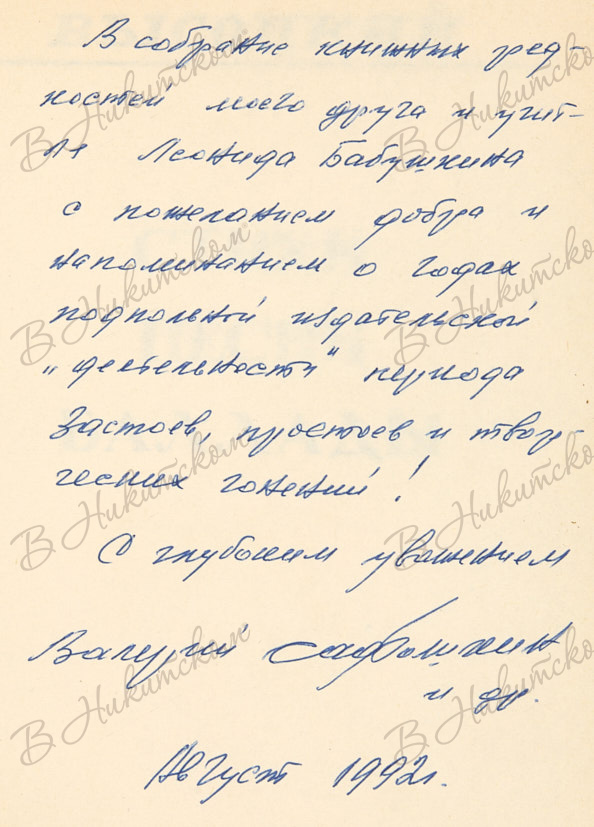 В собрание книжных ред-
костей моего друга и учите-
ля Леонида Бабушкина
с пожеланием добра и
напоминанием о годах
подпольной издательской
„деятельности" периода
Застоев, простоев и твор-
ческих гонений!
С глубоким уважением
Валерий Сафошкин
и др.
Август 1992г.
В. Никитском
В. Никитском
В. Никитском
В. Никитском
В. Никитско
В. Никитско
В. Никитско
В. Никитско